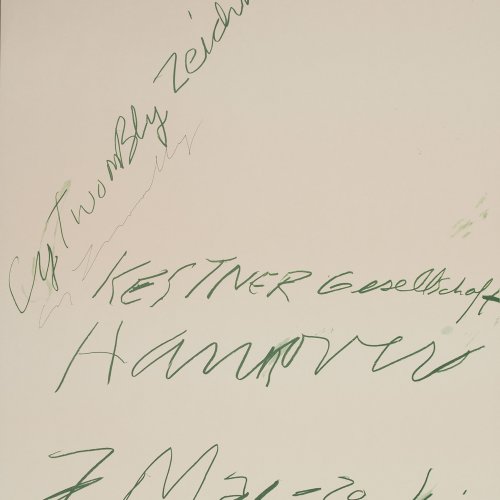 Cy Twombly Zeichn
KESTNER Gesellschaft
Hannover
7 Mai - 20